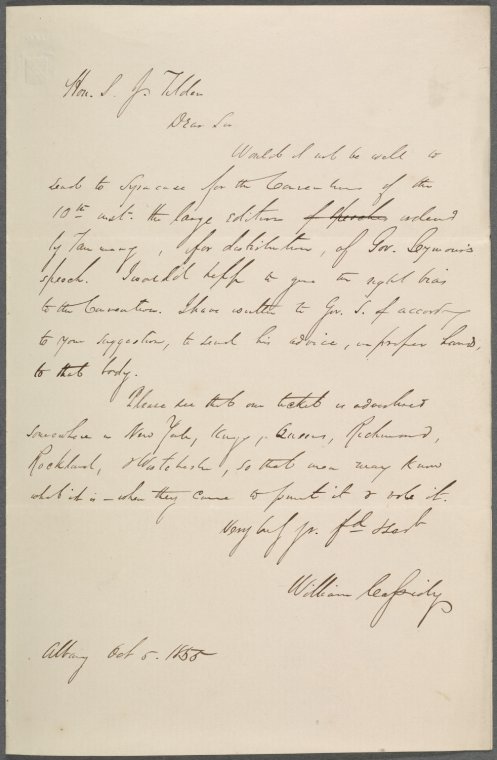 Hon. S. J. Tilden
Dear Sir
Would it not be well to
send to Syracuse for the Convention of the
10th inst. the large edition of speeches ordered
by Tammany, for distribution, of Gov. Seymour's
speech. It would help to give the right bias
to the Convention. I have written to Gov. S. according
to your suggestion, to send his advice, in proper hands,
to that body.
Please see that our ticket is advertised
somewhere in New York, Kings, Queens, Richmond,
Rockland, & Westchester, so that men may know
what it is — when they come to print it & vote it.
Very truly yr. fd &
William Cassidy
Albany Oct 5. 1855